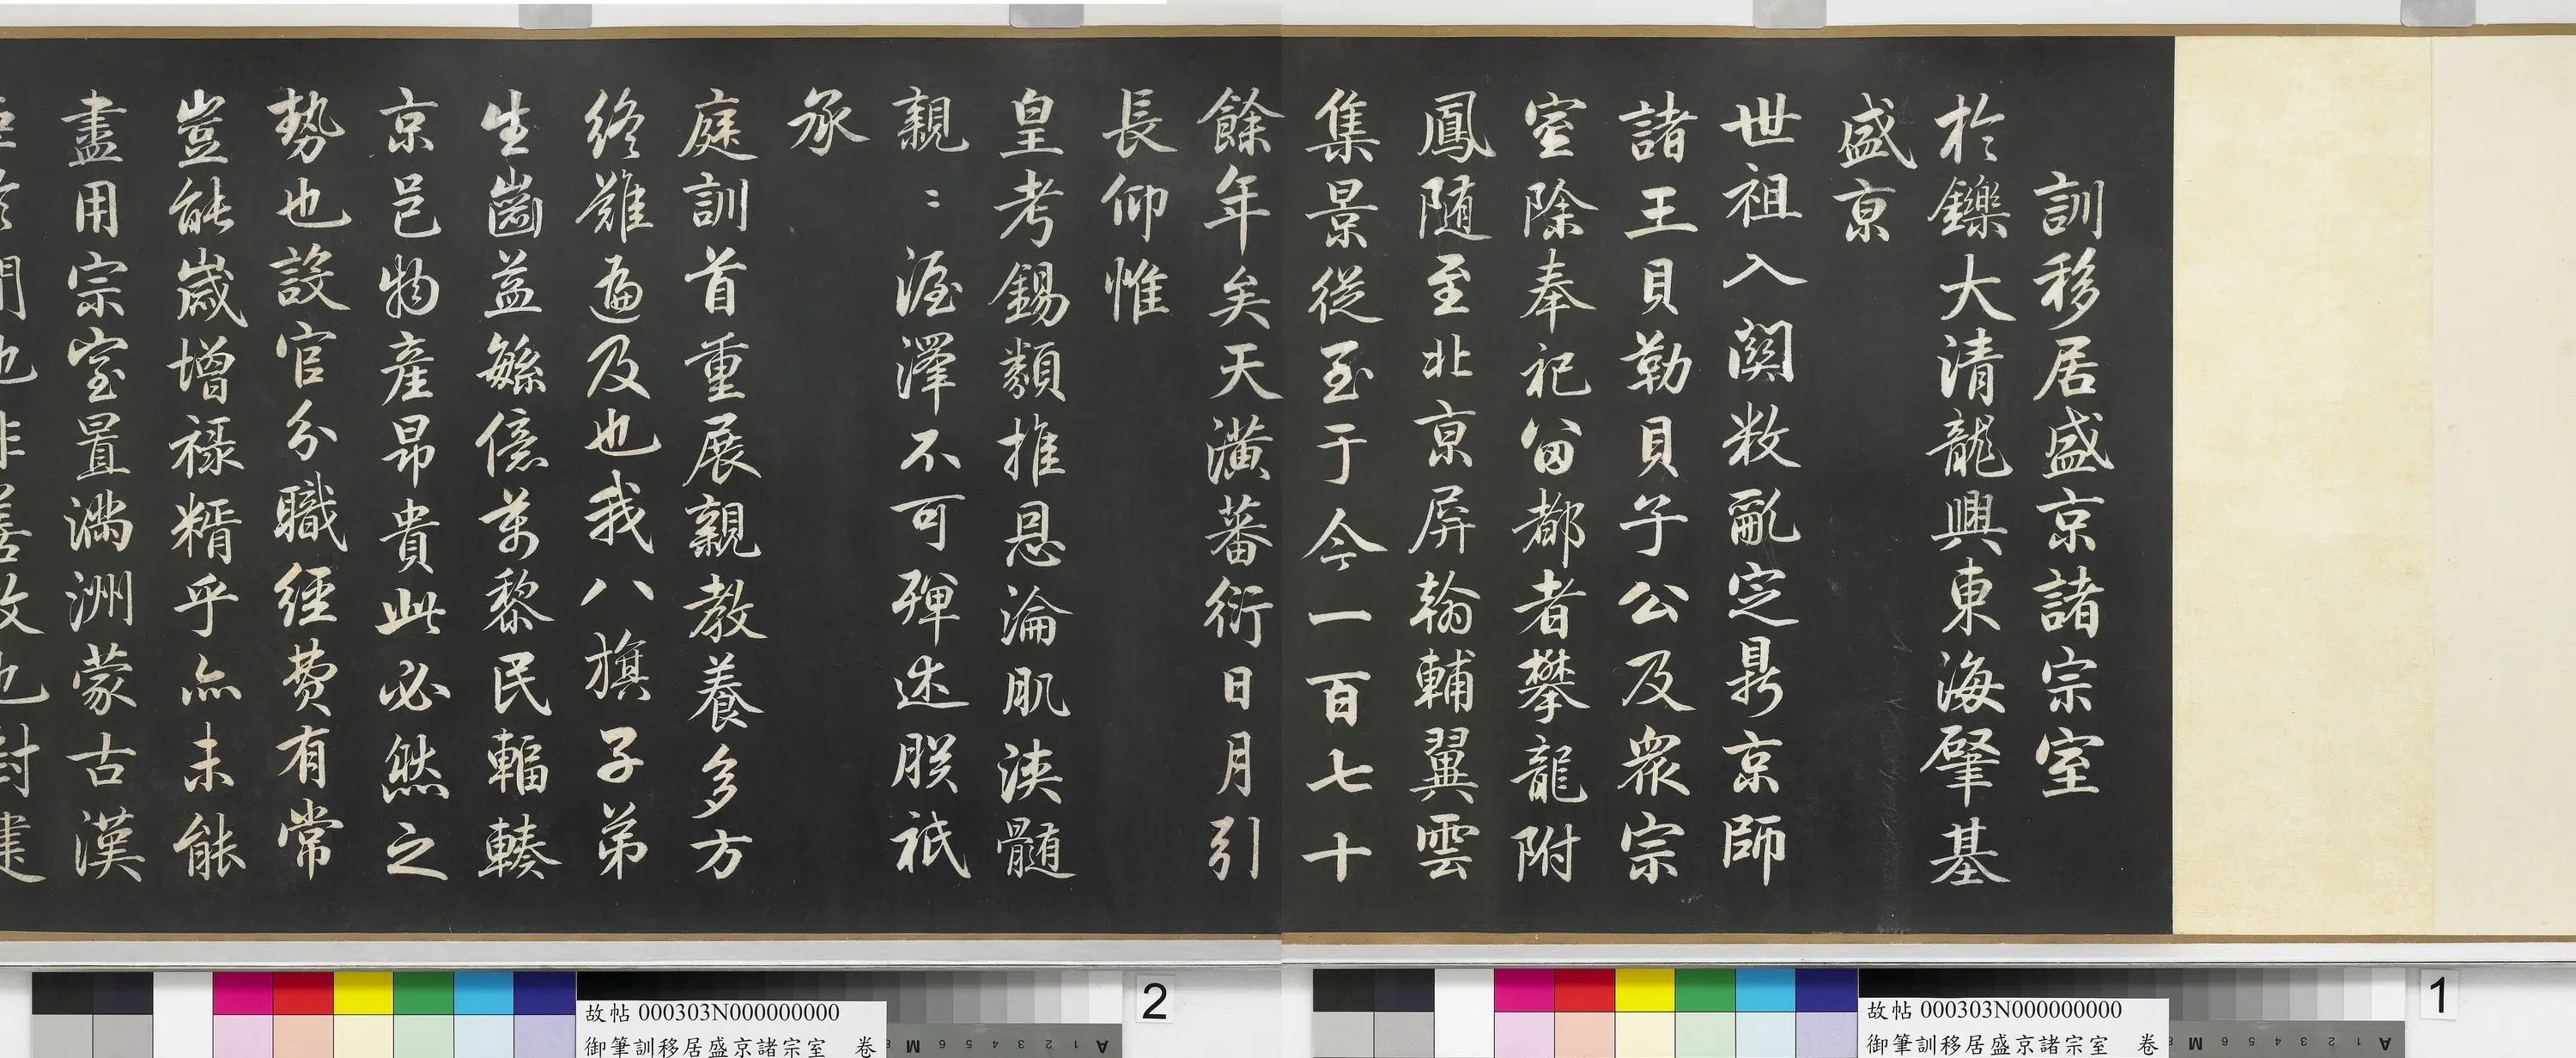 訓移居盛京諸宗室
於鑠大清龍興東海肇基
盛京
世祖入關敉亂定鼎京師
諸王貝勒貝子公及衆宗
室除奉祀留都者攀龍附
鳳随至北京屏翰輔翼雲
集景從至于今一百七十
餘年矣天潢蕃衍日月引
長仰惟
皇考錫類推恩淪肌浹髓
親〻渥澤不可殫述朕祇
承
庭訓首重展親教養多方
終難遍及也我八旗子弟
生齒益繁億萬黎民輻輳
京邑物產昂貴此必然之
勢也設官分職經費有常
豈能歲增禄糈乎亦未能
盡用宗室置滿洲蒙古漢
也非善政也封建
2
故帖 000303N000000000
御筆訓移居盛京諸宗室 卷
1
故帖 000303N000000000
御筆訓移居盛京諸宗室 卷